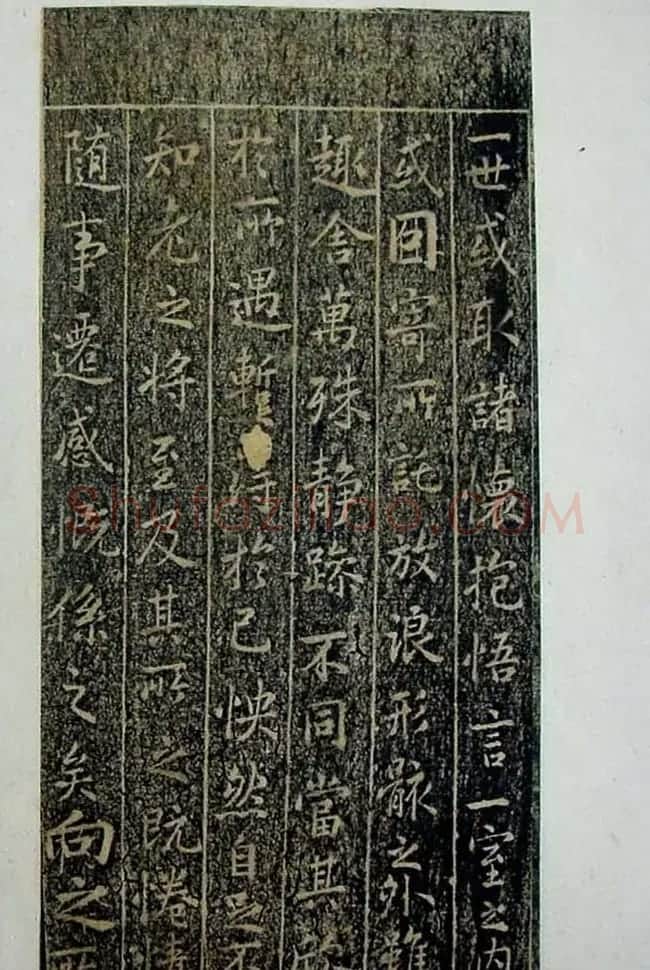 一世或取諸懷抱悟言一室之內
或因寄所託放浪形骸之外雖
趣舍萬殊靜躁不同當其欣
於所遇暫得於己怏然自足不
知老之將至及其所之既惓情
隨事遷感慨係之矣向之所
Shufaziliao.COM